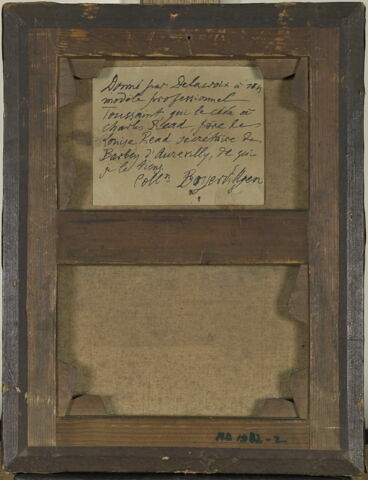 Donné par Delacroix à son
modèle professionnel
Toussaint qui le céda à
Charles Read père de
Louise Read secrétaire de
Barbey d'Aurevilly, de qui
je le tiens
Coll^n Boyer d'Agen
RD 1982-2